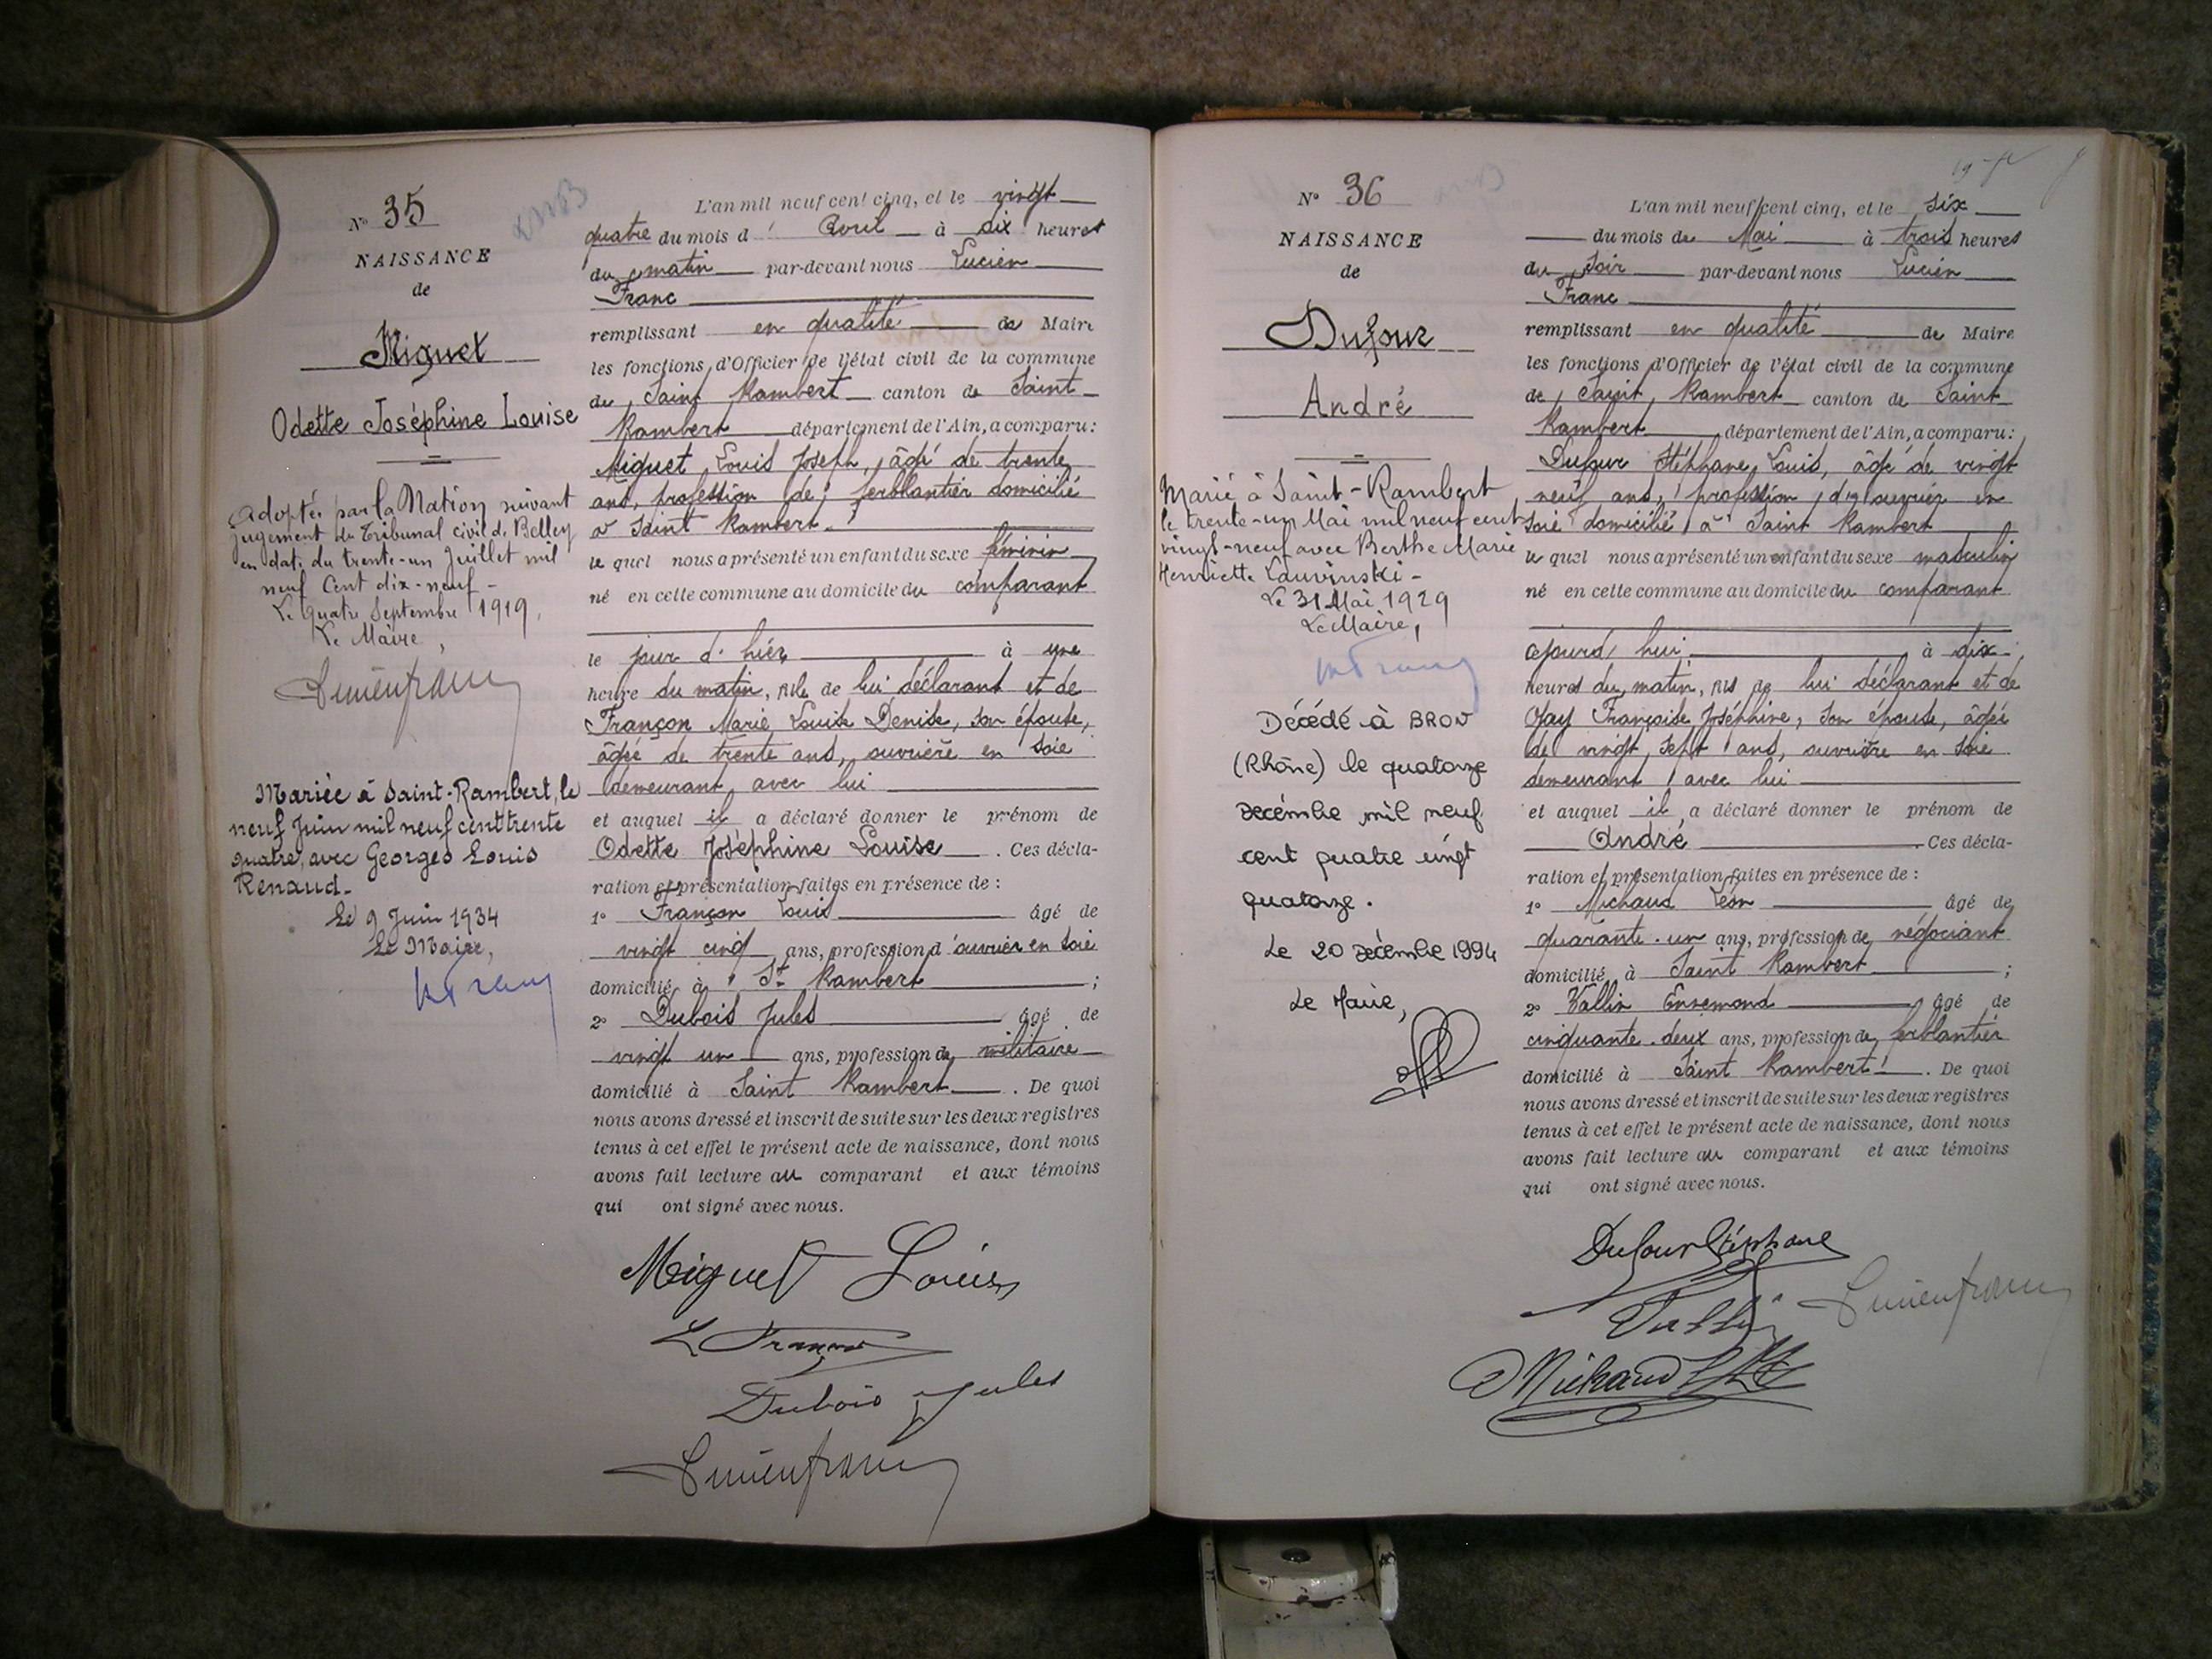 Nº 35
NAISSANCE
de
Miguet
Odette Joséphine Louise
Adoptée par la Nation suivant
jugement du Tribunal civil de Belley
en date du trente-un Juillet mil
neuf Cent dix-neuf-
Le quatre Septembre 1919,
Le Maire,
Lucienfranc
Mariée à Saint-Rambert, le
neuf Juin mil neuf cent trente
quatre, avec Georges Louis
Renaud-
Le 9 Juin 1934
Le Maire,
L'an mil neuf cent cinq, et le vingt
quatre du mois d' Avril à dix heures
du matin par-devant nous Lucien
Franc
remplissant en qualité de Maire
les fonctions d'Officier de l'état civil de la commune
de Saint Rambert canton de Saint
Rambert département de l'Ain, a comparu:
Miguet Louis Joseph, âgé de trente
ans, profession de ferblantier domicilié
à Saint Rambert
le quel nous a présenté un enfant du sexe féminin
né en cette commune au domicile du comparant
le jour d'hier à une
heure du matin, fille de lui déclarant et de
Françon Marie Louise Denise, son épouse,
âgée de trente ans, ouvrière en soie
demeurant avec lui
et auquel il a déclaré donner le prénom de
Odette Joséphine Louise. Ces décla-
ration et présentation faites en présence de:
1º Françon Louis âgé de
vingt cinq ans, profession d'ouvrier en soie
domicilié à St Rambert;
2º Dubois Jules âgé de
vingt un ans, profession de militaire
domicilié à Saint Rambert. De quoi
nous avons dressé et inscrit de suite sur les deux registres
tenus à cet effet le présent acte de naissance, dont nous
avons fait lecture au comparant et aux témoins
qui ont signé avec nous.
Miguet Louis
L Françon
Dubois Jules
Lucienfranc
Nº 36
NAISSANCE
de
Dufour
André
Marié à Saint-Rambert
le trente-un Mai mil neuf cent
vingt-neuf avec Berthe Marie
Henriette Lauvinski-
Le 31 Mai 1929
Le Maire,
Décédé à BRON
(Rhône) le quatorze
décembre mil neuf
cent quatre vingt
quatorze.
Le 20 décembre 1994
Le Maire,
L'an mil neuf cent cinq, et le six
du mois de Mai à trois heures
du soir par-devant nous Lucien
Franc
remplissant en qualité de Maire
les fonctions d'Officier de l'état civil de la commune
de Saint Rambert canton de Saint
Rambert département de l'Ain, a comparu:
Dufour Stéphane Louis, âgé de vingt
neuf ans, profession d'ouvrier en
soie domicilié à Saint Rambert
le quel nous a présenté un enfant du sexe masculin
né en cette commune au domicile du comparant
ajourd'hui à dix
heures du matin, fils de lui déclarant et de
Gay Françoise Joséphine, son épouse, âgée
de vingt sept ans, ouvrière en soie
demeurant avec lui
et auquel il a déclaré donner le prénom de
André. Ces décla-
ration et présentation faites en présence de:
1º Michaud Léon âgé de
quarante-un ans, profession de négociant
domicilié à Saint Rambert;
2º Vallin Ennemond âgé de
cinquante-deux ans, profession de ferblantier
domicilié à Saint Rambert. De quoi
nous avons dressé et inscrit de suite sur les deux registres
tenus à cet effet le présent acte de naissance, dont nous
avons fait lecture au comparant et aux témoins
qui ont signé avec nous.
Dufour Stéphane
Vallin
Lucienfranc
Michaud